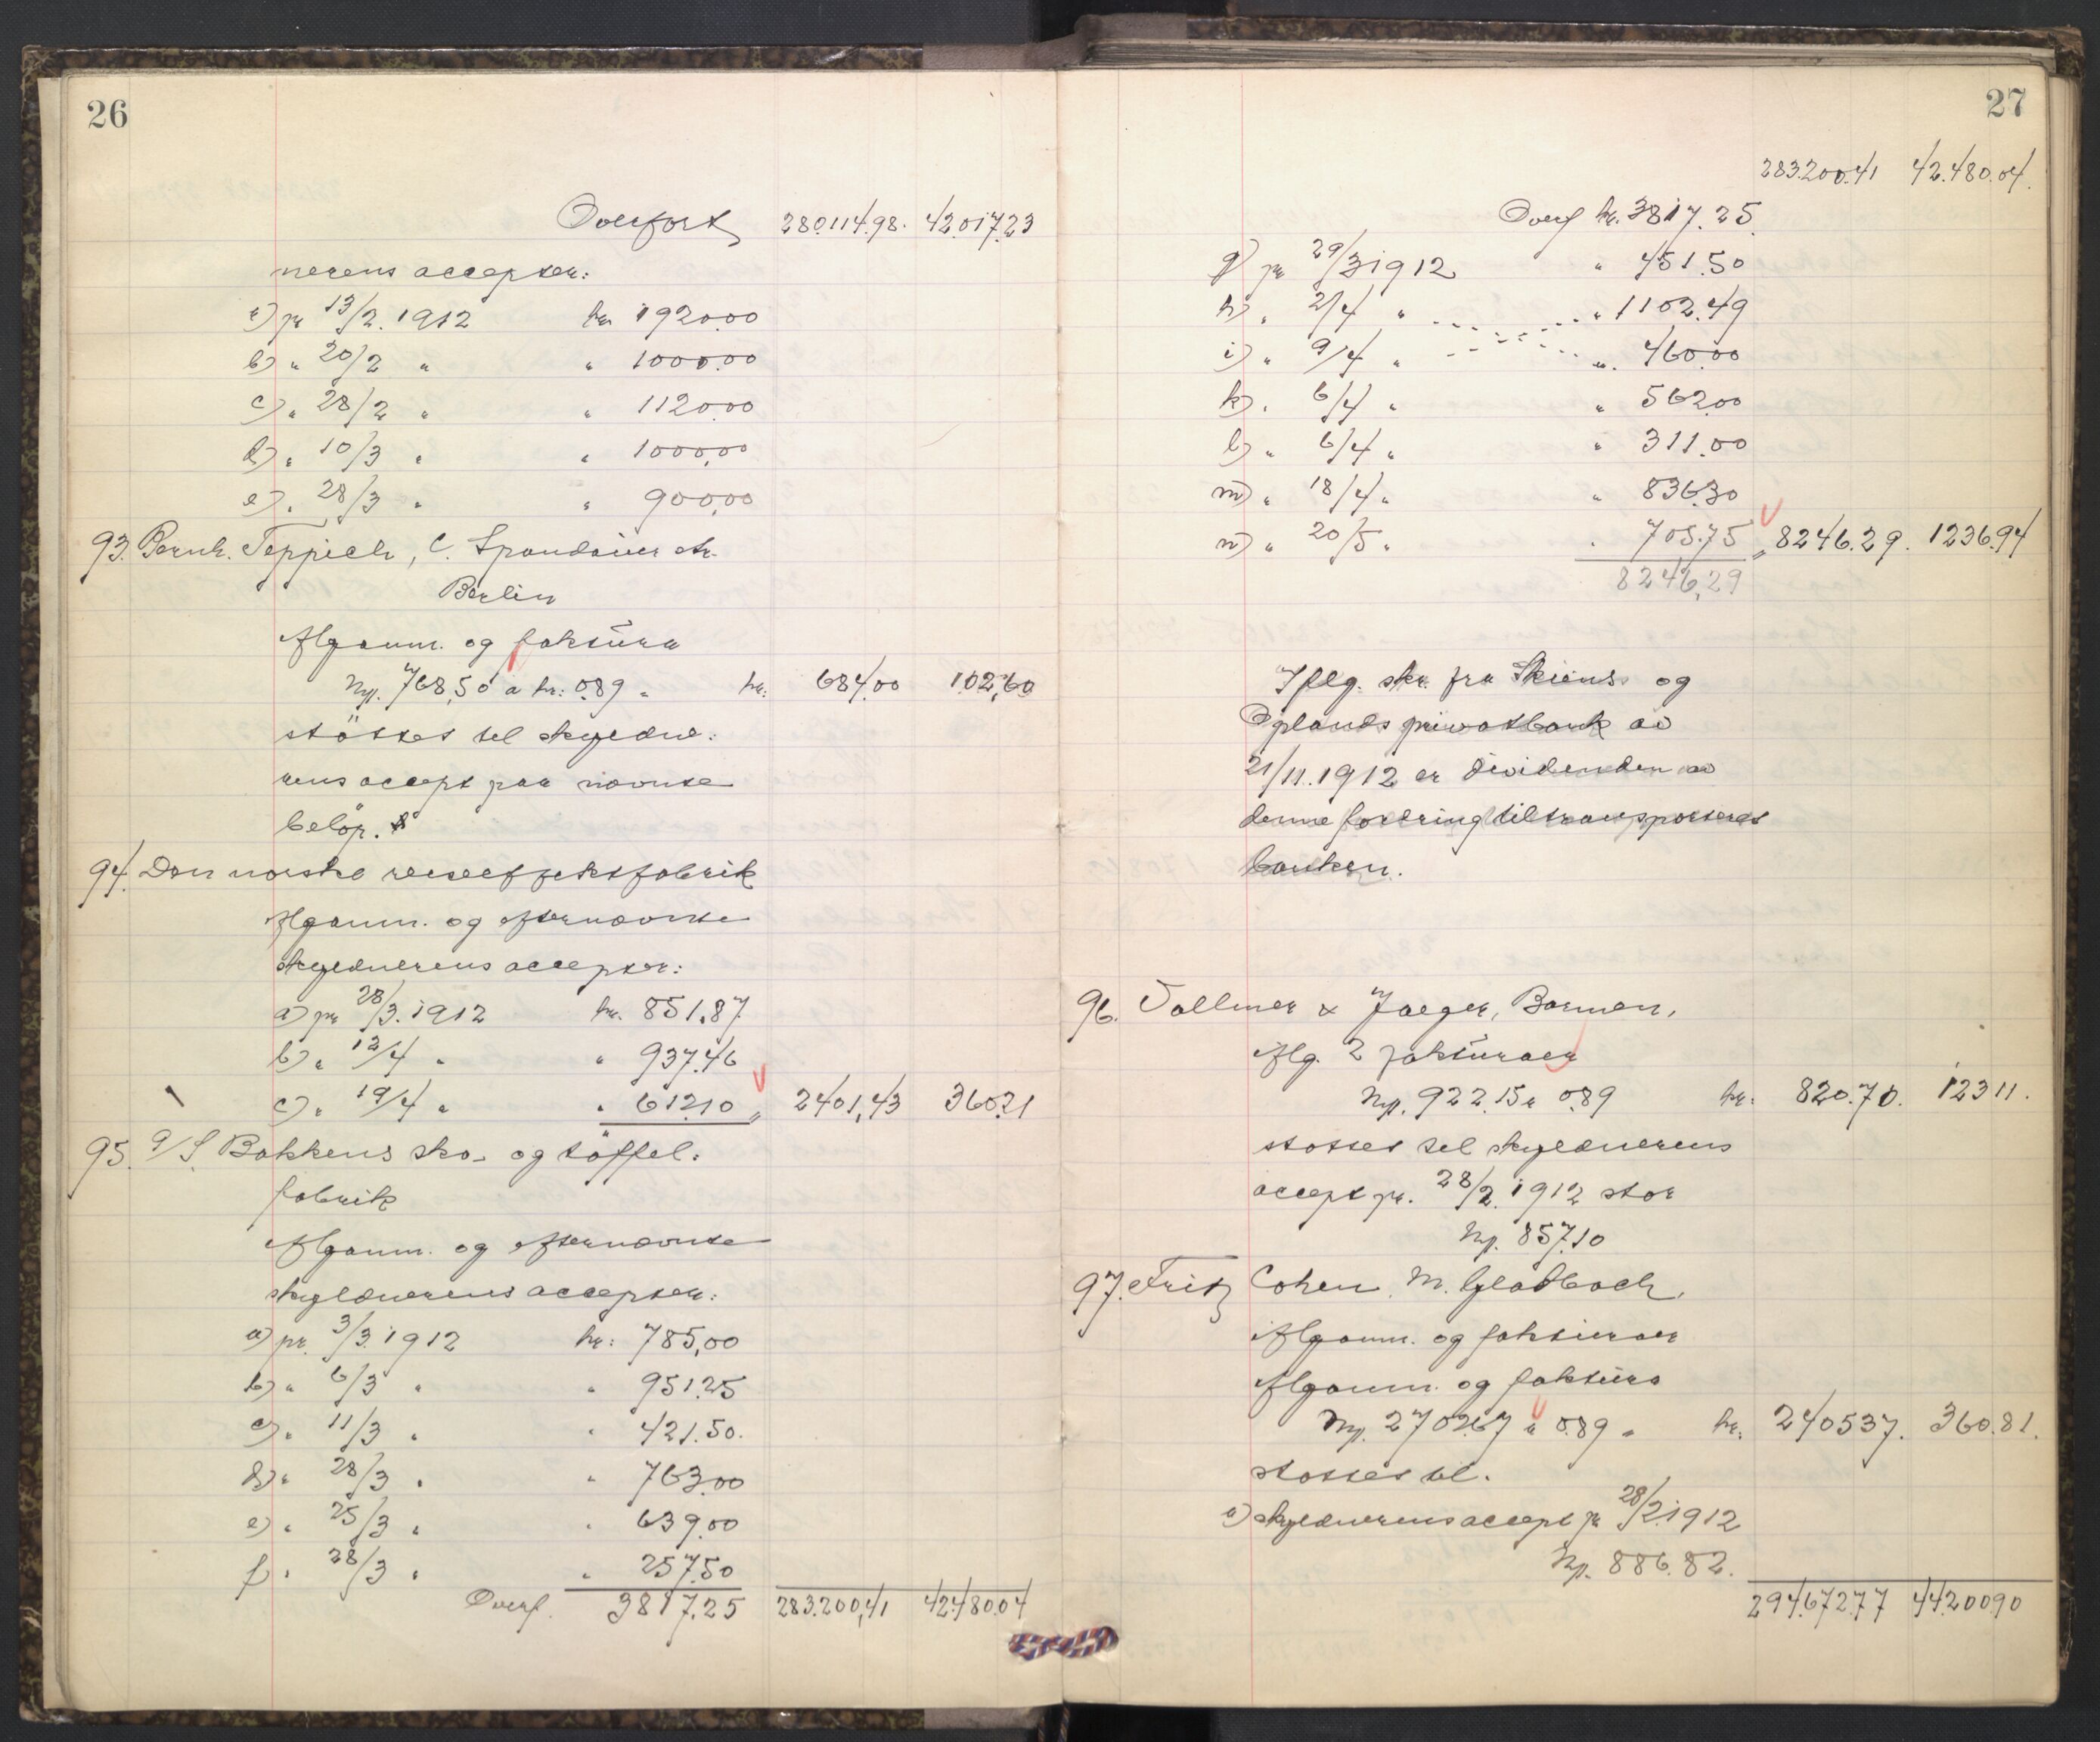 26
Overført 280.114.98. 42.017.23
nerens accepter:
a) pr 13/2. 1912 kr. 1920.00
b) " 20/2 " " 1000.00
c) " 28/2 " " 1120.00
d) " 10/3 " " 1000,00
e) " 28/3 " " 900,00
93. Bernh. Teppich, C. Spandauer str.
Berlin
Ifl. anm. og faktura
Mk. 768,50 a kr: 0.89 = kr: 684,00 102,60
støttet til skyldne:
rens accept paa nævnte
beløp.
94. Den norske reiseeffektfabrik
Ifl. anm. og efternævnte
skyldnerens accepter:
a) pr 28/3. 1912 kr. 851.87
b) " 12/4 " " 937.46
c) " 19/4 " " 612.10 " 2401,43 360.21
95. A/S. Bakkens sko- og tøffel:
fabrik
Ifl. anm. og efternævnte
skyldnerens accepter:
a) pr. 3/3. 1912 kr: 785,00
b) " 6/3 " " 951.25
c) " 11/3 " " 421.50.
d) " 28/3 " " 763.00
e) " 25/3 " " 639.00
f) " 28/3 " " 257.50
Overf. 3817.25 283.200,41 42.480.04
27
283.200.41 42.480.04.
Overf kr. 3817.25.
g) pr 29/3 1912 " 451.50
h) " 2/4 " " 1102.49
i) " 9/4 " " 460.00
k) " 6/4 " " 562.00
l) " 6/4 " " 311.00
m) " 18/4 " " 836.30
n) " 20/5 " " 705.75 " 8246.29. 1236.94
8246,29
Iflg. skr. fra Skiens og
Oplands privatbank av
21/11.1912 er dividenden av
denne fordring tiltransporteret
banken.
96. Vollmer & Jaeger, Barmen,
Iflg. 2 fakturaer
Mk. 922.15 a 0.89 kr: 820.70. 123 11.
støttet til skyldnerens
accept pr. 28/2. 1912 stor
Mk. 857.10
97. Fritz Cohen, M. Gladbach,
Ifl. anm. og fakturaer
Ifl. anm. og faktura
Mk. 2702.67 a 0.89 = kr. 2405.37. 360.81.
støttet til.
a) skyldnerens accept pr 28/2. 1912
Mk. 886.82.
294.672.77 44.200.90